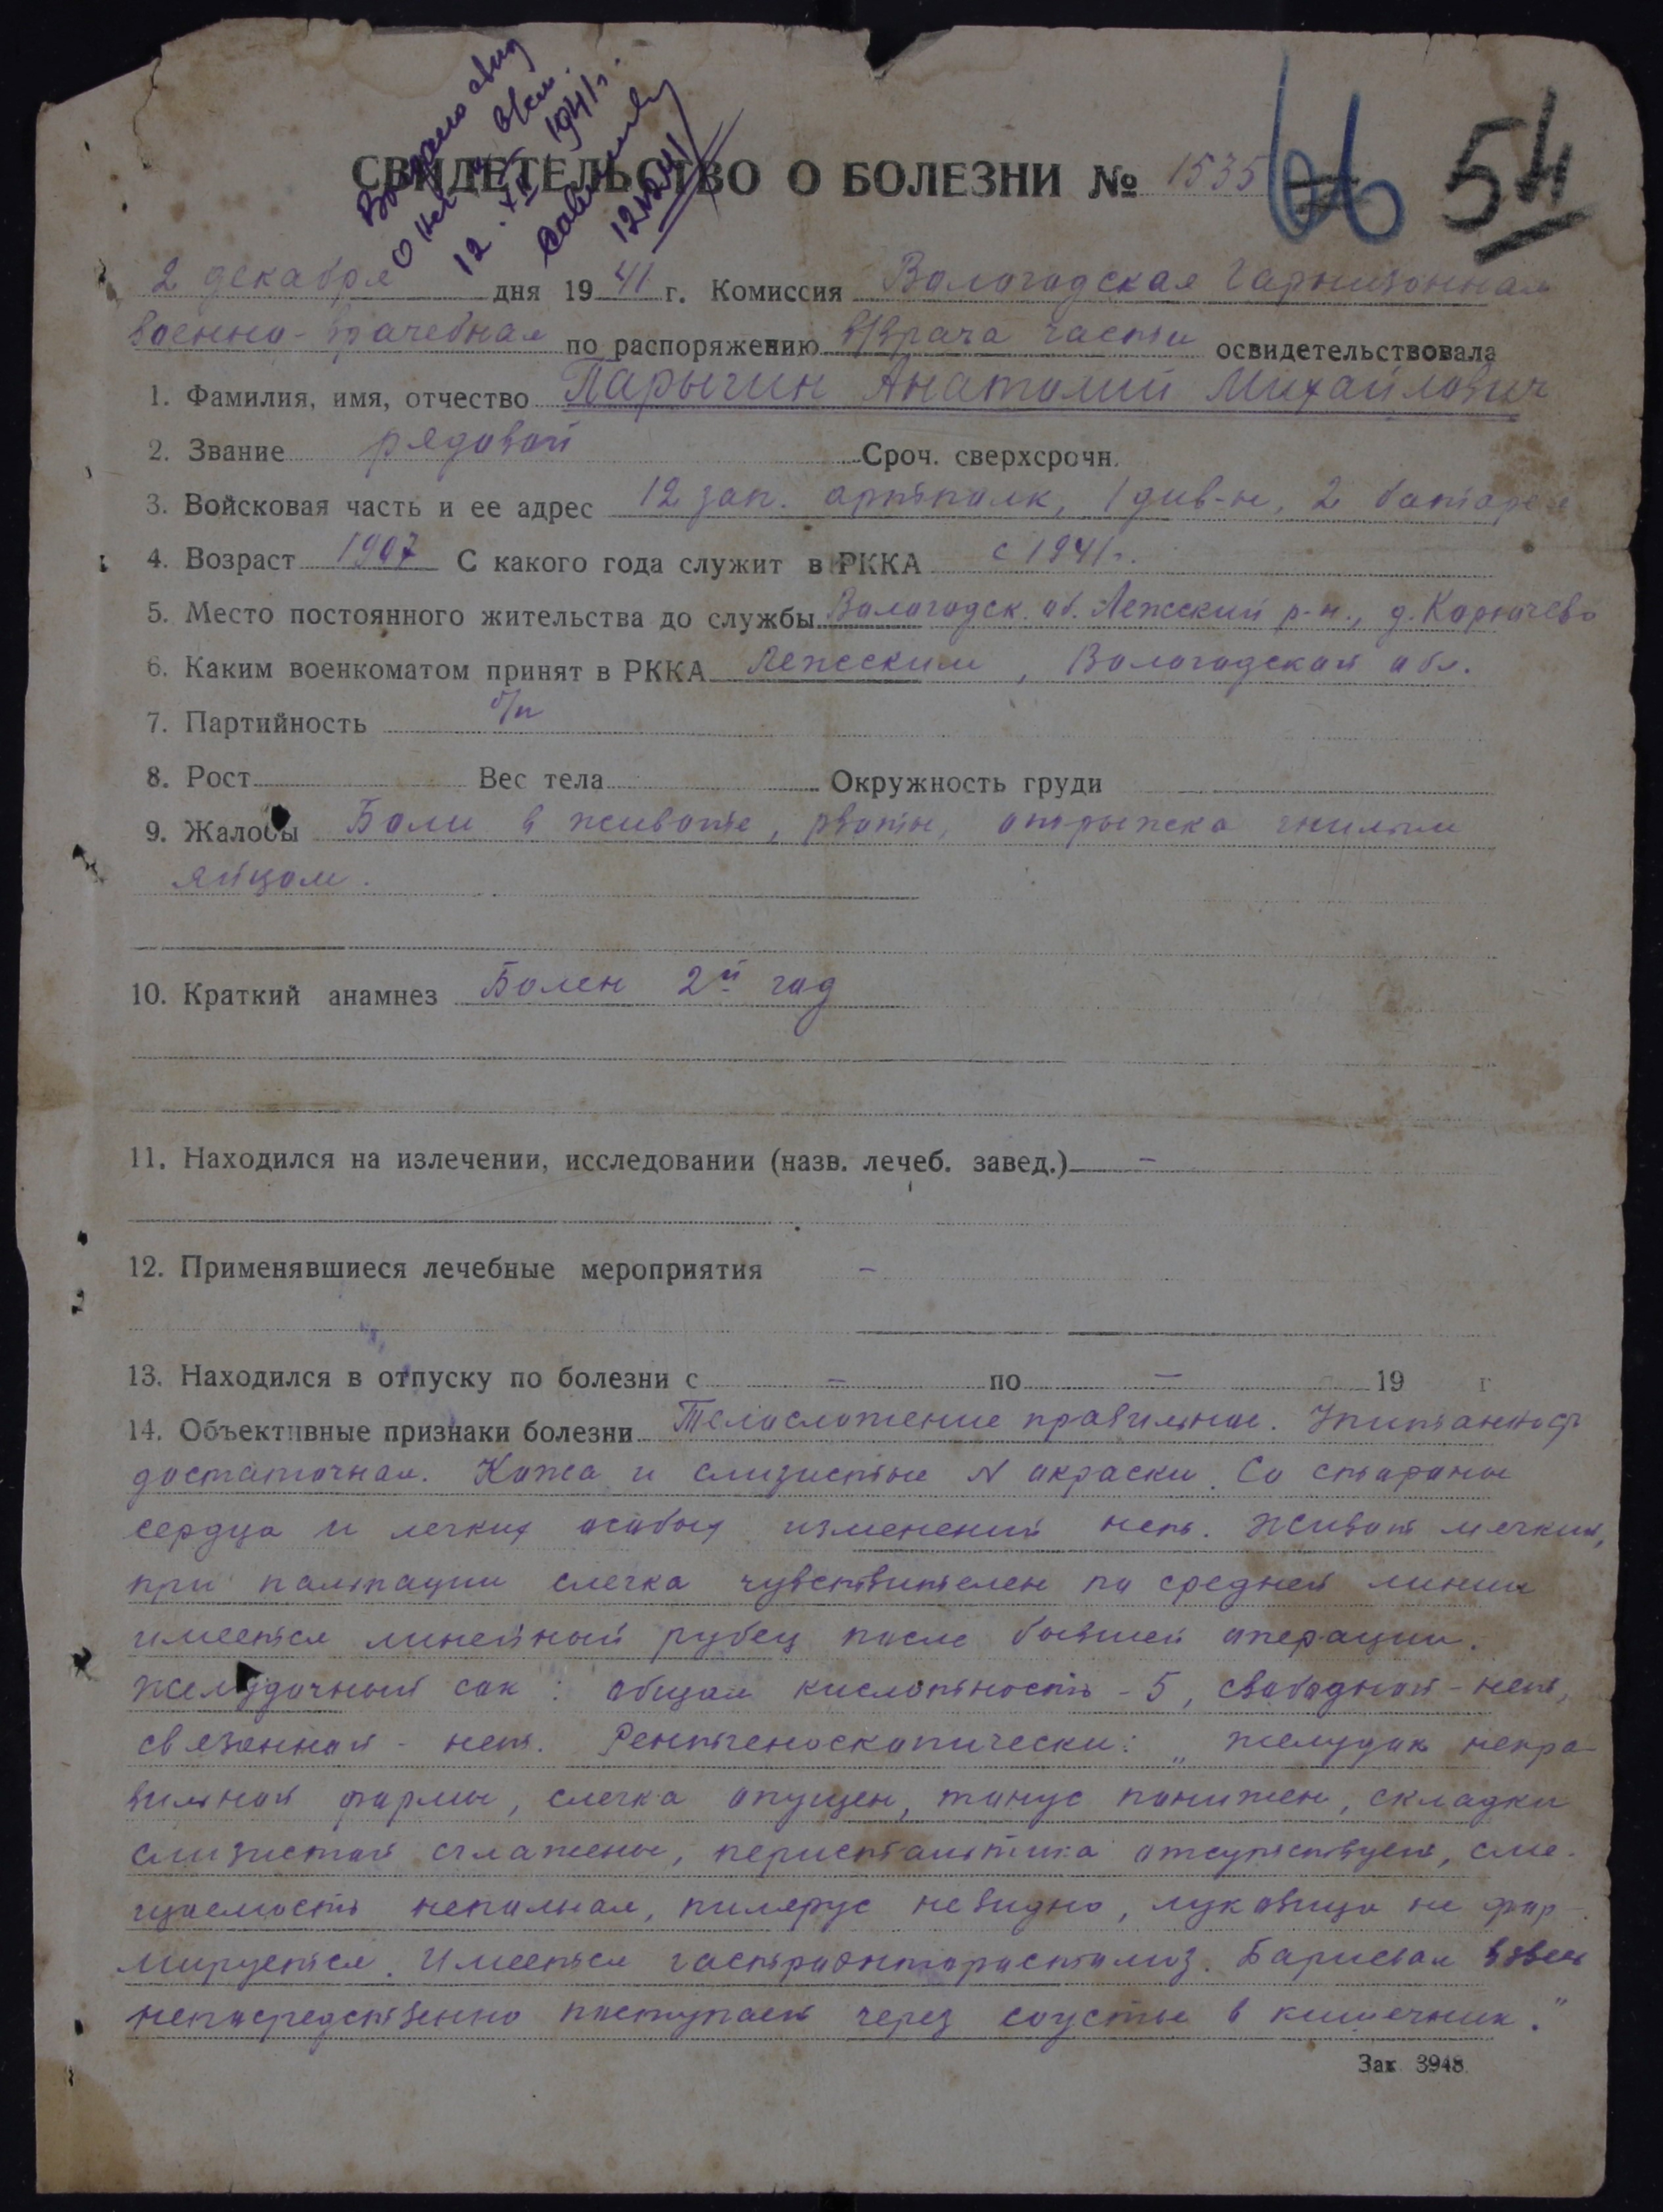 Выдано свид
о негодн. в/сл.
12.XII 1941 г.
12.12.41
СВИДЕТЕЛЬСТВО О БОЛЕЗНИ № 1535 66 54
2 декабря дня 1941 г. Комиссия Вологодская гарнизонная
военно-врачебная по распоряжению в/врача части освидетельствовала
1. Фамилия, имя, отчество Парыгин Анатолий Михайлович
2. Звание рядовой Сроч. сверхсрочн.
3. Войсковая часть и ее адрес 12 зап. артполк, 1 див-н, 2 батарея
4. Возраст 1907 С какого года служит в РККА с 1941 г.
5. Место постоянного жительства до службы Вологодск. об. Лежский р-н., д.
6. Каким военкоматом принят в РККА Лежским, Вологодской обл.
7. Партийность б/п
8. Рост Вес тела Окружность груди
9. Жалобы Боли в животе, рвоты, отрыжка гнилым
яйцом.
10. Краткий анамнез Болен 2й год
11. Находился на излечении, исследовании (назв. лечеб. завед.) –
12. Применявшиеся лечебные мероприятия –
13. Находился в отпуску по болезни с – по – 19 г
14. Объективные признаки болезни Телосложение правильное. Упитанность
достаточная. Кожа и слизистые N окраски. Со стороны
сердца и легких особых изменений нет. Живот мягкий,
при пальпации слегка чувствителен по средней линии
имеется линейный рубец после бывшей операции.
Желудочный сок: общая кислотность - 5, свободной - нет,
связанной - нет. Рентгеноскопически: „Желудок непра-
вильной формы, слегка опущен, тонус понижен, складки
слизистой сглажены, перистальтика отсутствует, сме-
щаемость неполная, пилерус не видно, луковица не фор-
мируется. Имеется гастроэнтеростомоз. Бариевая взвесь
непосредственно поступает через соустье в кишечник."
Зак 3948